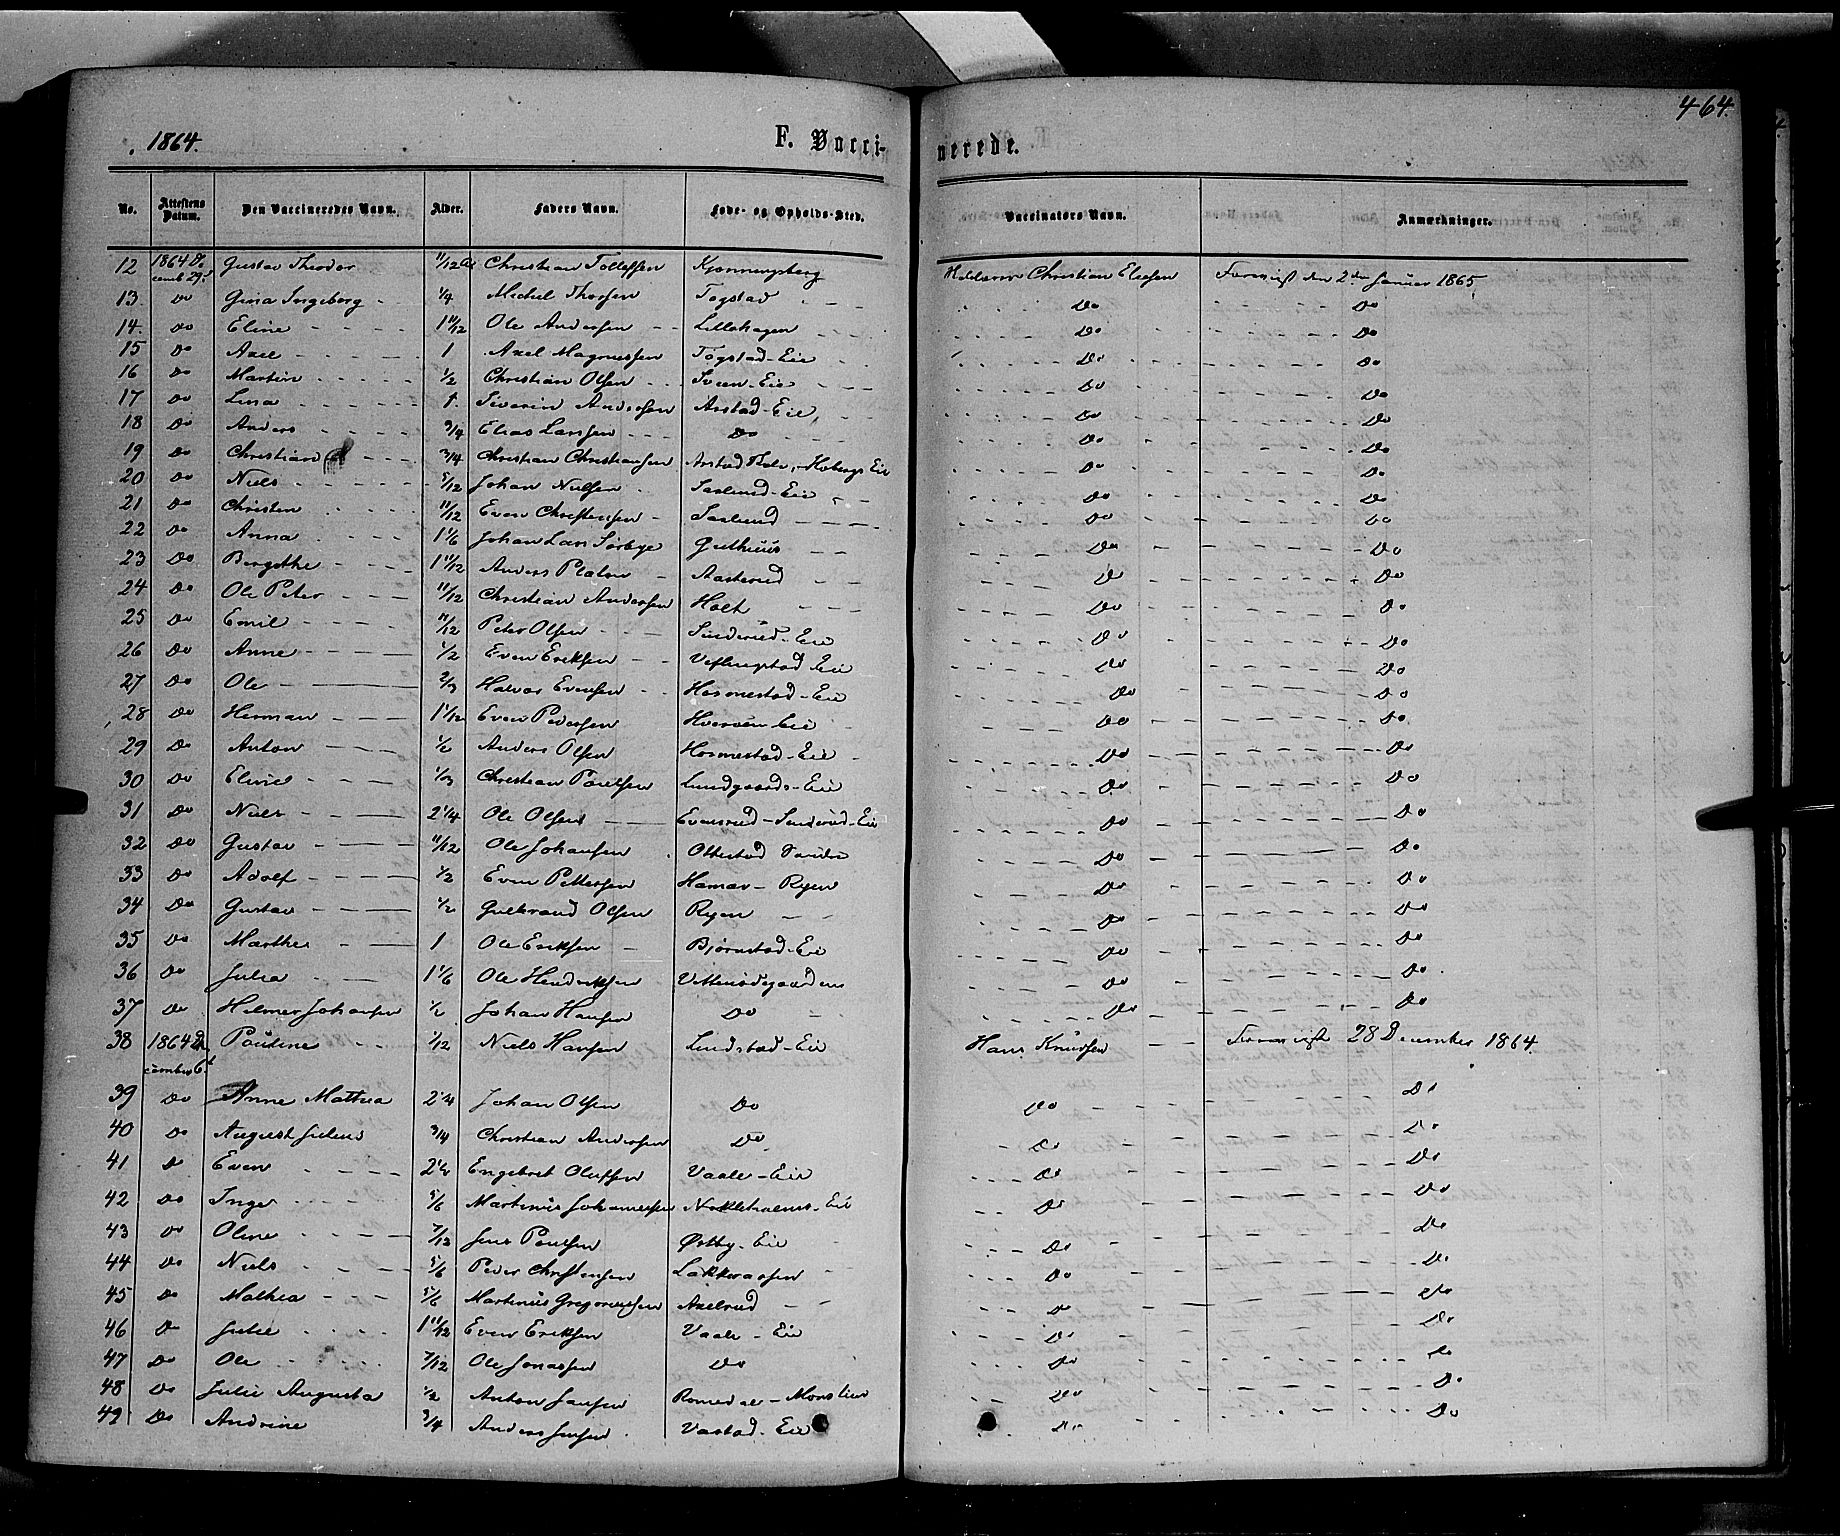 464.
1864.
F. Vacci-
nerede.
No. Attestens Datum. Den Vaccineredes Navn. Alder. Faders Navn. Føde- og Opholds-Sted. Vaccinators Navn. Anmærkninger.
12 1864 De Gustav Theodor 11/12 Christian Tollefsen Christian Eliesen 2den Januar 1865
cemb 29.
13. Do Gina Ingeborg - - 1/4 Michel Thorsen Togstad - - Do Do
14. Do Eline - - - - 1 11/12 Ole Andersen - - Lillehagen Do Do
15 Do Axel - - - - 1 Axel Magnussen Togstad-Eie Do Do
16 Do Martin - - - - 1/2 Christian Olsen - - Sveen-Eie Do Do
17 Do Lina - - - - 1. Severin Andersen Arstad-Eie Do Do
18 Do Anders - - - - 3/4 Elias Larsen - - - Do Do Do
19 Do Christian - - - 3/4 Christian Christiansen Do Do
20 Do Niels - - - - 5/12 Johan Nielsen Saslund-Eie Do Do
21 Do Christen - - - 11/12 Even Christensen - Saslund - - - Do Do
22 Do Anna - - - - 1 1/6 Johan Lars Sørbye - - Do Do
23 Do Bergethe - - - 1 11/12 Anders - Aasterud Do Do
24 Do Ole Peter - - - 11/12 Christian Andersen Holt - - - Do Do
25 Do Emil - - - - 11/12 Peter Olsen - - - Sinderud-Eie Do Do
26 Do Anne - - - - 1/2 Even Eriksen - - Eie Do Do
27 Do Ole - - - 2/3 Halvor Evensen - - Hosmestad-Eie Do Do
28 Do Herman - - - Even Pedersen Eie Do Do
29 Do Anton - - - Anders Olsen Hosmestad-Eie Do Do
30 Do Eline - - - 1/3 Christian Poulsen Lundgaards-Eie Do Do
31 Do Niels - - - 2 1/4 Ole Olsen - - Evensrud-Sinderud-Eie Do Do
32 Do Gustav - - - 11/12 Ole Johansen Ottestad Do Do
33 Do Adolf - - - 1/2 Even Pettersen Hamar - Ryen Do Do
34 Do Gustav - - - 1/2 Gulbrand Olsen Ryen - - Do Do
35 Do Marthe - - 1 Ole Eriksen - Bjørnstad-Eie Do Do
36 Do Julia - - 1 1/6 Ole Hendriksen Do Do
37 Do Helmer Johansen Johan Hansen Do Do Do
38 1864 De Pouline - - 1/12 Niels Hansen Lindstad-Eie Hans Knudsen - - 28 December 1864.
cember 6.
39 Do Anne Mathea 2 1/4 Johan Olsen Do Do Do
40 Do August Julius 3/4 Christian Andersen Do Do Do
41 Do Even - - - 2 1/2 Engebret Olufsen Vaale-Eie Do Do
42 Do Inger - - - 5/6 Martinus Johannessen Eie Do Do
43 Do Oline - - - 7/12 Jens Poulsen Østby-Eie Do Do
44 Do Niels - - - 5/6 Peder Christensen Do Do
45 Do Mathea - - - 5/6 Martinus Gregoriussen Axelrud - - Do Do
46 Do Julie - - - 1 11/12 Even Eriksen Vaale - Eie Do Do
47 Do Ole - - - 7/12 Ole Jonassen Do Do Do
48 Do Julie Augusta 1/2 Anton Jansen Do Do
49 Do Andrine 3/4 Anders Jensen Vastad-Eie Do Do